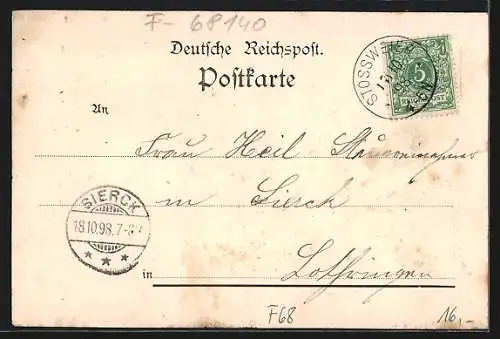 F-68140
Deutsche Reichspost.
Postkarte
STOSSWEIER
5
REICHSPOST
An
Frau Heil Steuereinnehmer
in Sierck
SIERCK
18.10.98. 7-8V
in Lothringen
F68
16,-